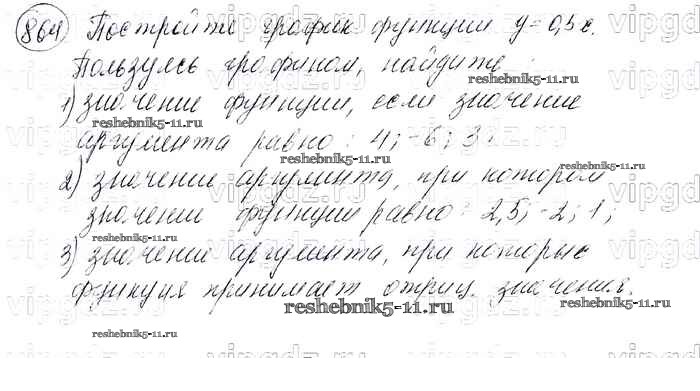 864 Постройте график функции y = 0,5x.
Пользуясь графиком, найдите
1) значение функции, если значение
аргумента равно: 4; -6; 3.
2) значение аргумента, при котором
значении функции равно: 2,5; -2; 1;
3) значение аргумента, при которые
функция принимает отриц. значения.
reshebnik5-11.ru
reshebnik5-11.ru
reshebnik5-11.ru
reshebnik5-11.ru
reshebnik5-11.ru
reshebnik5-11.ru
reshebnik5-11.ru
reshebnik5-11.ru
vipgdz.ru